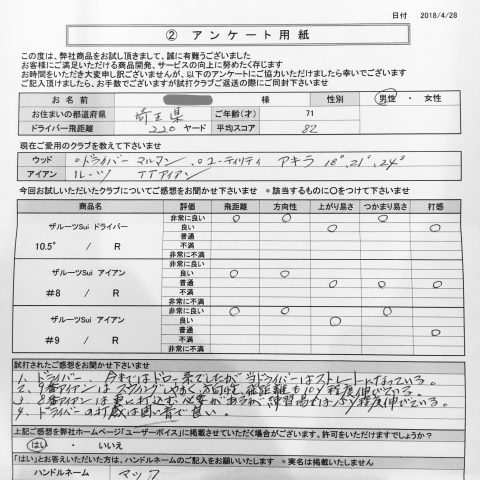 日付 2018/4/28
② アンケート用紙
この度は、弊社商品をお試し頂きまして、誠に有難うございました
お客様にご満足いただける商品開発、サービスの向上に努めたく存じます
お時間をいただき大変申し訳ございませんが、以下のアンケートにご協力いただけましたら幸いでございます
ご記入頂けましたら、お手数でございますが試打クラブご返送の際にご同封下さいませ
お名前 様 性別 男性 ・ 女性
お住まいの都道府県 埼玉県 ご年齢(才) 71
ドライバー飛距離 220 ヤード 平均スコア 82
現在ご愛用のクラブを教えて下さいませ
ウッド ○ドライバー マルマン、○ユーティリティ アキラ 18°、21°、24°
アイアン ルーツ TTアイアン
今回お試しいただいたクラブについてご感想をお聞かせ下さいませ *該当するものに○をつけて下さいませ
商品名 評価 飛距離 方向性 上がり易さ つかまり易さ 打感
ザルーツSui ドライバー
10.5° / R
非常に良い ○ ○ ○
良い ○ ○
普通
不満
非常に不満
ザルーツSui アイアン
#8 / R
非常に良い
良い ○ ○
普通 ○ ○ ○
不満
非常に不満
ザルーツSui アイアン
#9 / R
非常に良い ○ ○ ○
良い ○
普通 ○
不満
非常に不満
試打されたご感想をお聞かせ下さいませ
1、ドライバー 今まではドロー系でしたが当ドライバーはストレートになっている。
2、9番アイアンはスウィングしやすく、方向性、飛距離も10Y程度伸びている。
3、8番アイアンは更に打込む必要があるが、練習場では 程度伸びている。
4、ドライバーの打感は 良い。
上記ご感想を弊社ホームページ「ユーザーボイス」に掲載させていただく場合がございます。許可をいただけますでしょうか?
はい ・ いいえ
「はい」とお答えいただいた方は、ハンドルネームのご記入をお願いいたします *実名は掲載いたしません
ハンドルネーム マック